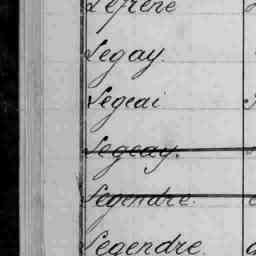 Lefrene
Legay.
Legeai
Legeay.
Legendre.
Legendre.